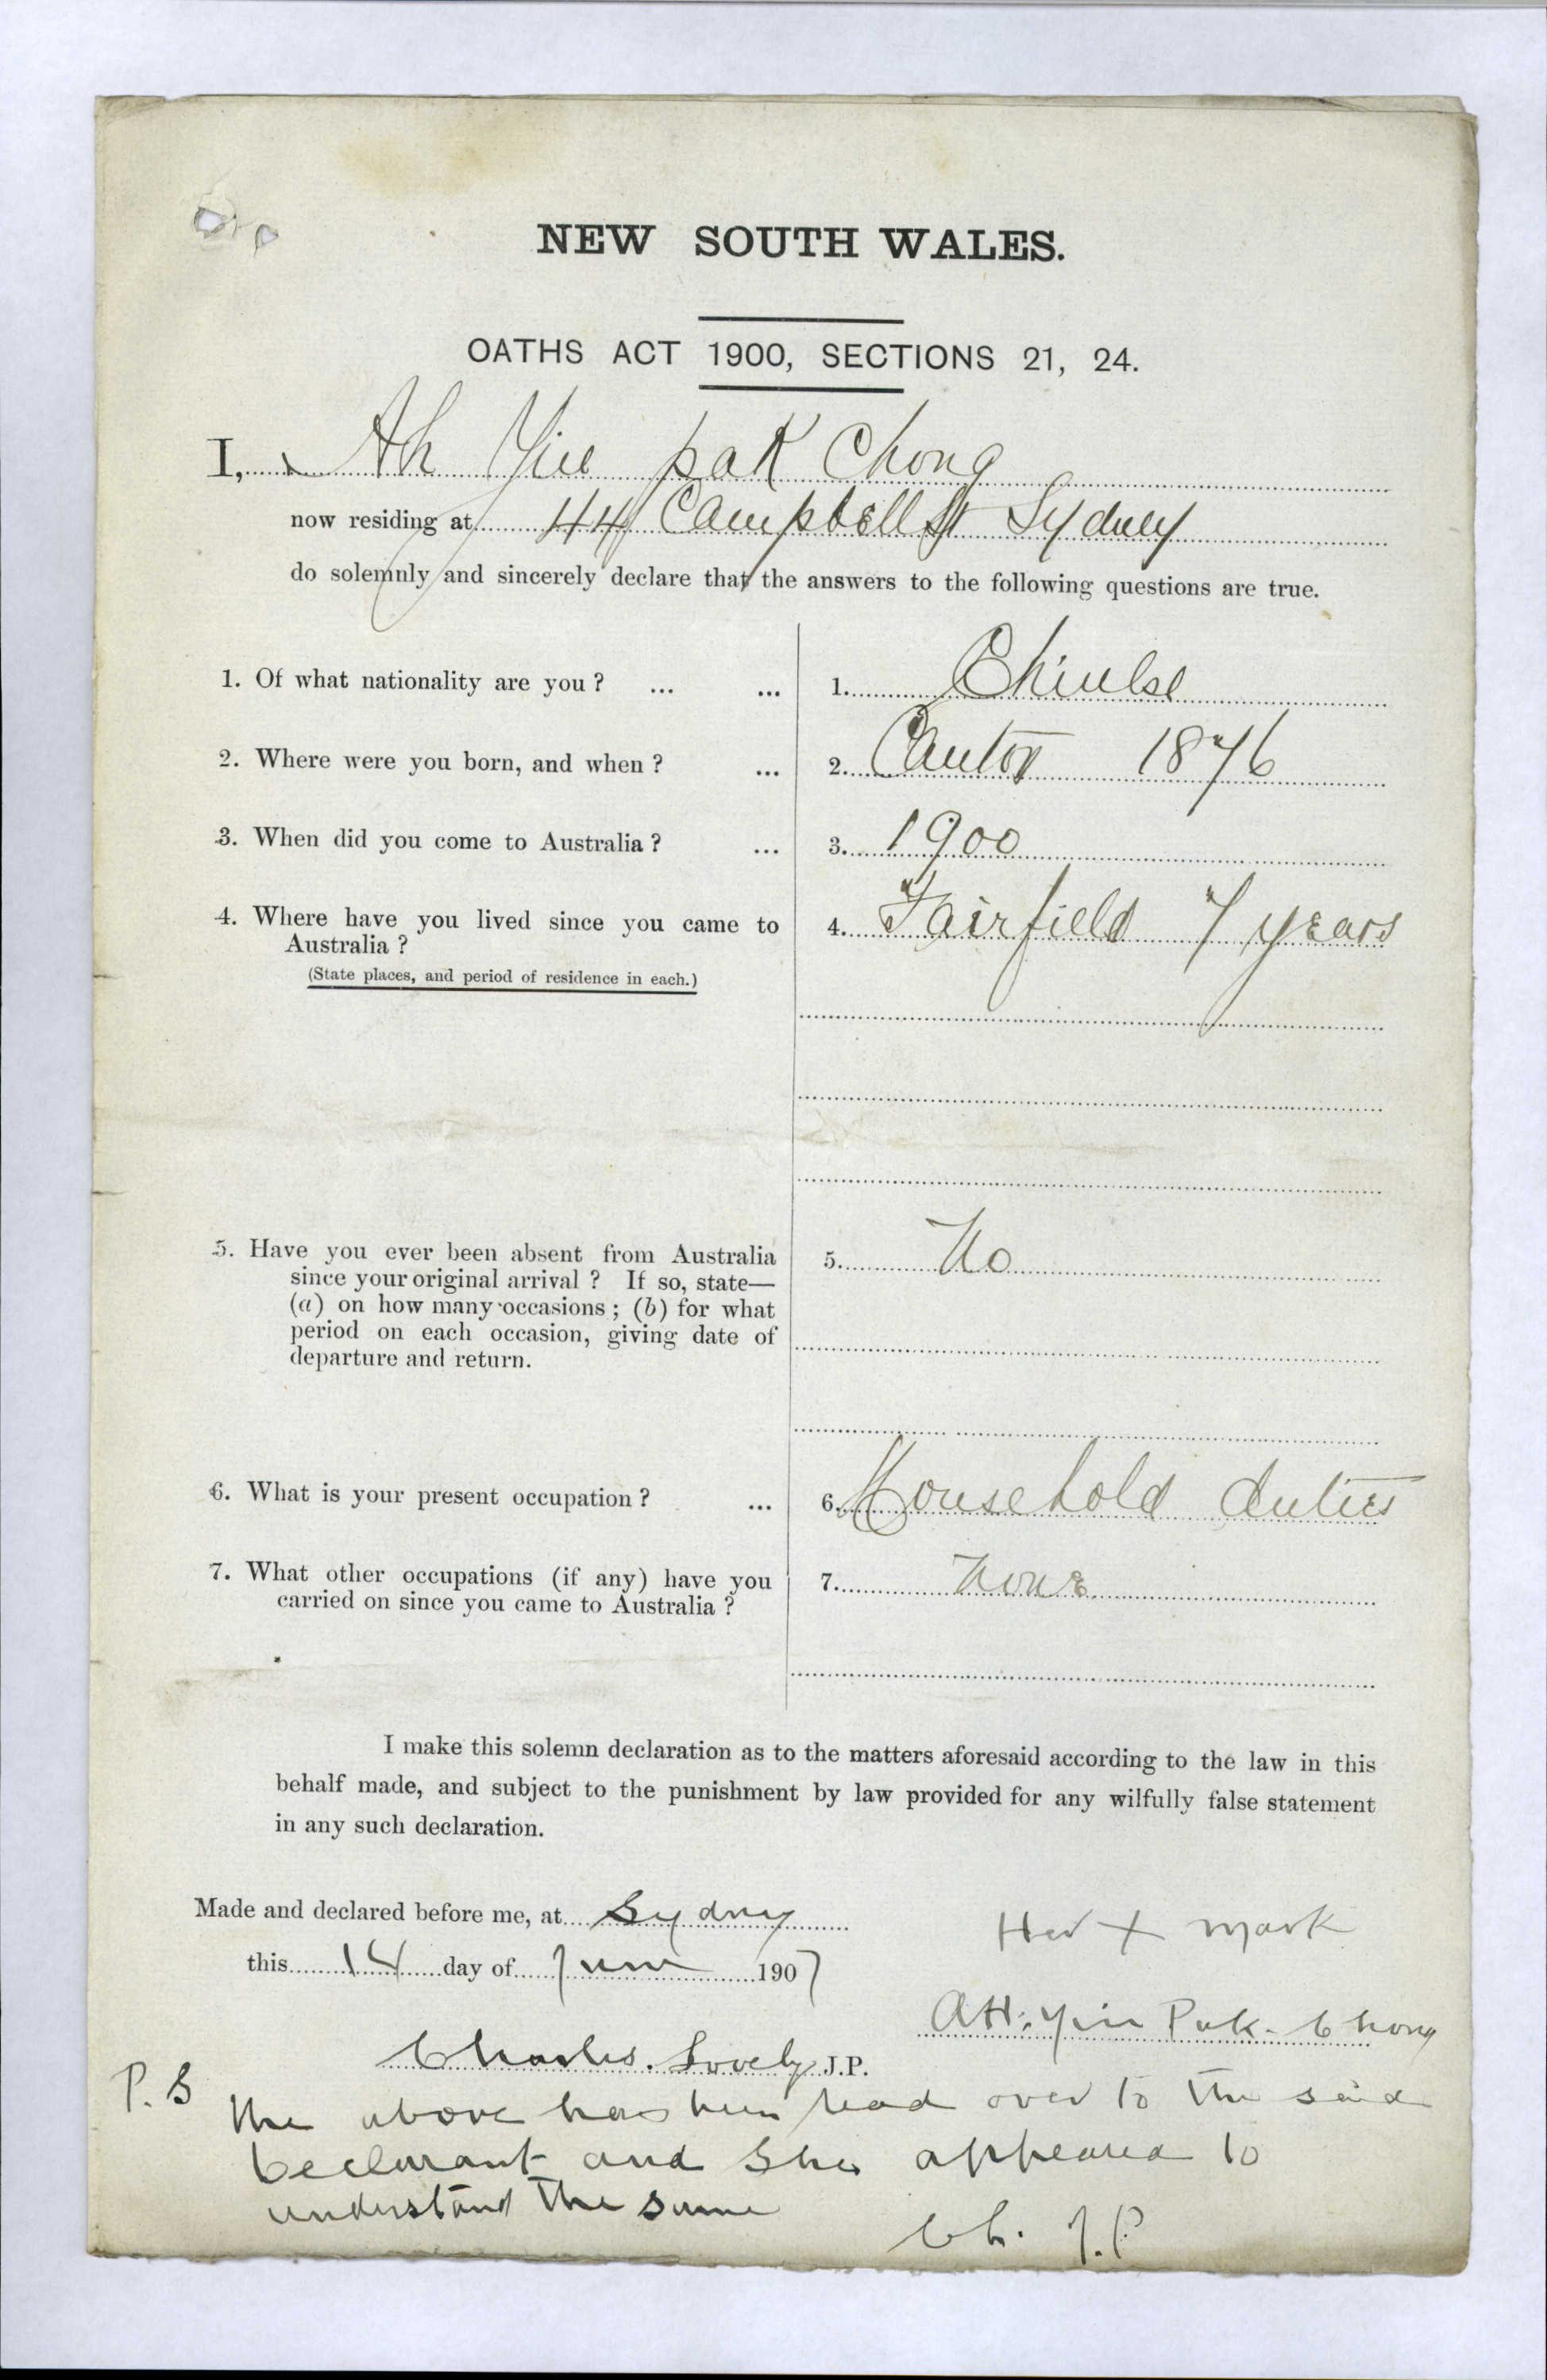 NEW SOUTH WALES.
OATHS ACT 1900, SECTIONS 21, 24.
I, Ah Yin pak Chong
now residing at 44 Campbell St Sydney
do solemnly and sincerely declare that the answers to the following questions are true.
1. Of what nationality are you? ... ... 1. Chinese
2. Where were you born, and when? ... 2. Canton 1876
3. When did you come to Australia? ... 3. 1900
4. Where have you lived since you came to 4. Fairfield 7 years
Australia?
(State places, and period of residence in each.)
5. Have you ever been absent from Australia 5. No
since your original arrival? If so, state—
(a) on how many occasions; (b) for what
period on each occasion, giving date of
departure and return.
6. What is your present occupation? ... 6. Household duties
7. What other occupations (if any) have you 7. None
carried on since you came to Australia?
I make this solemn declaration as to the matters aforesaid according to the law in this
behalf made, and subject to the punishment by law provided for any wilfully false statement
in any such declaration.
Made and declared before me, at Sydney
Her X mark
this 14 day of June 1907
AH. Yin Pak. Chong
Charles. Lovely J.P.
P.S the above has been read over to the said
Declarant and She appeared to
understand the same
CL. J.P